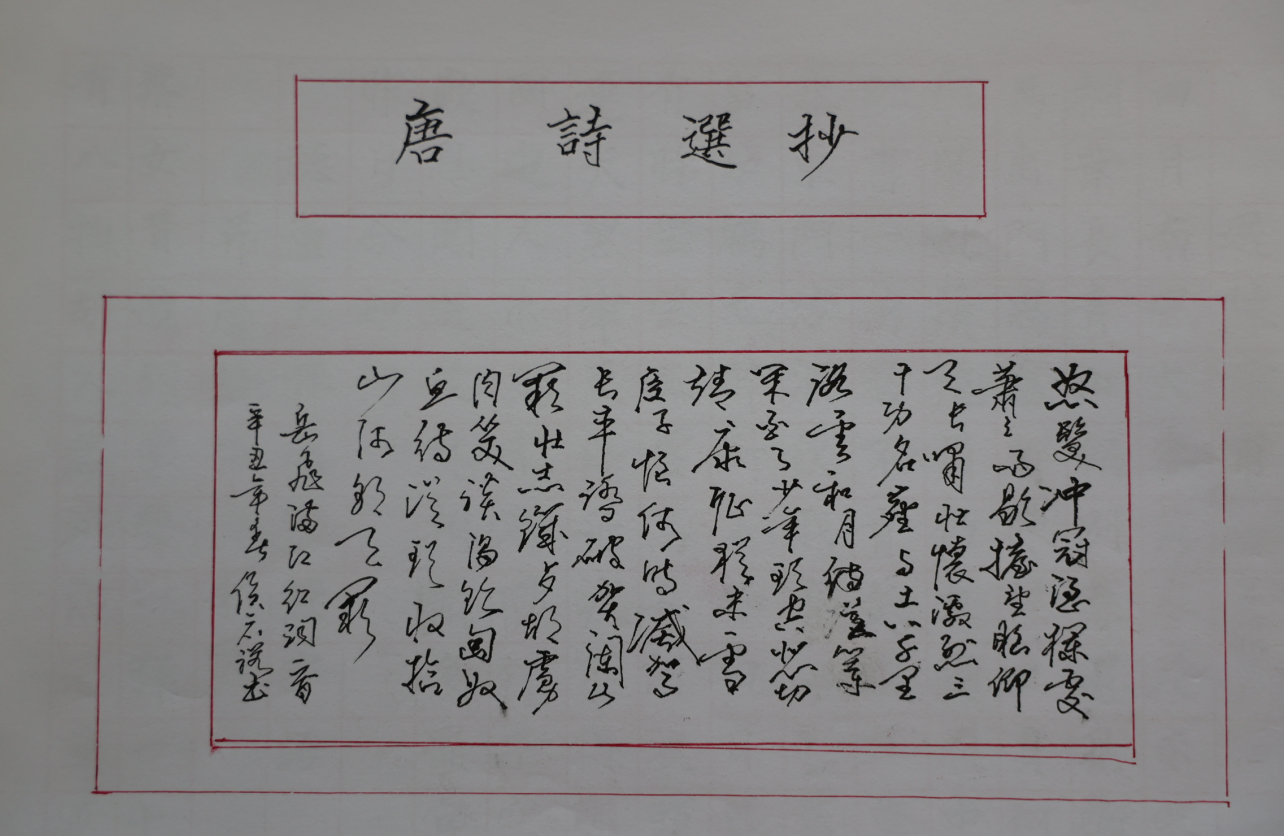 唐詩選抄
怒髮冲冠憑欄處
蕭々雨歇擡望眼仰
天長嘯壯懷激烈三
十功名塵与土八千里
路雲和月等
閑白了少年頭空悲切
靖康耻猶未雪
臣子恨何時滅駕
長車踏破賀蘭山
闕壯志饑胡虜
肉笑談渴飲匈奴
血待從頭收拾
山河朝天闕
岳飛滿江紅詞一首
辛丑年春侯书